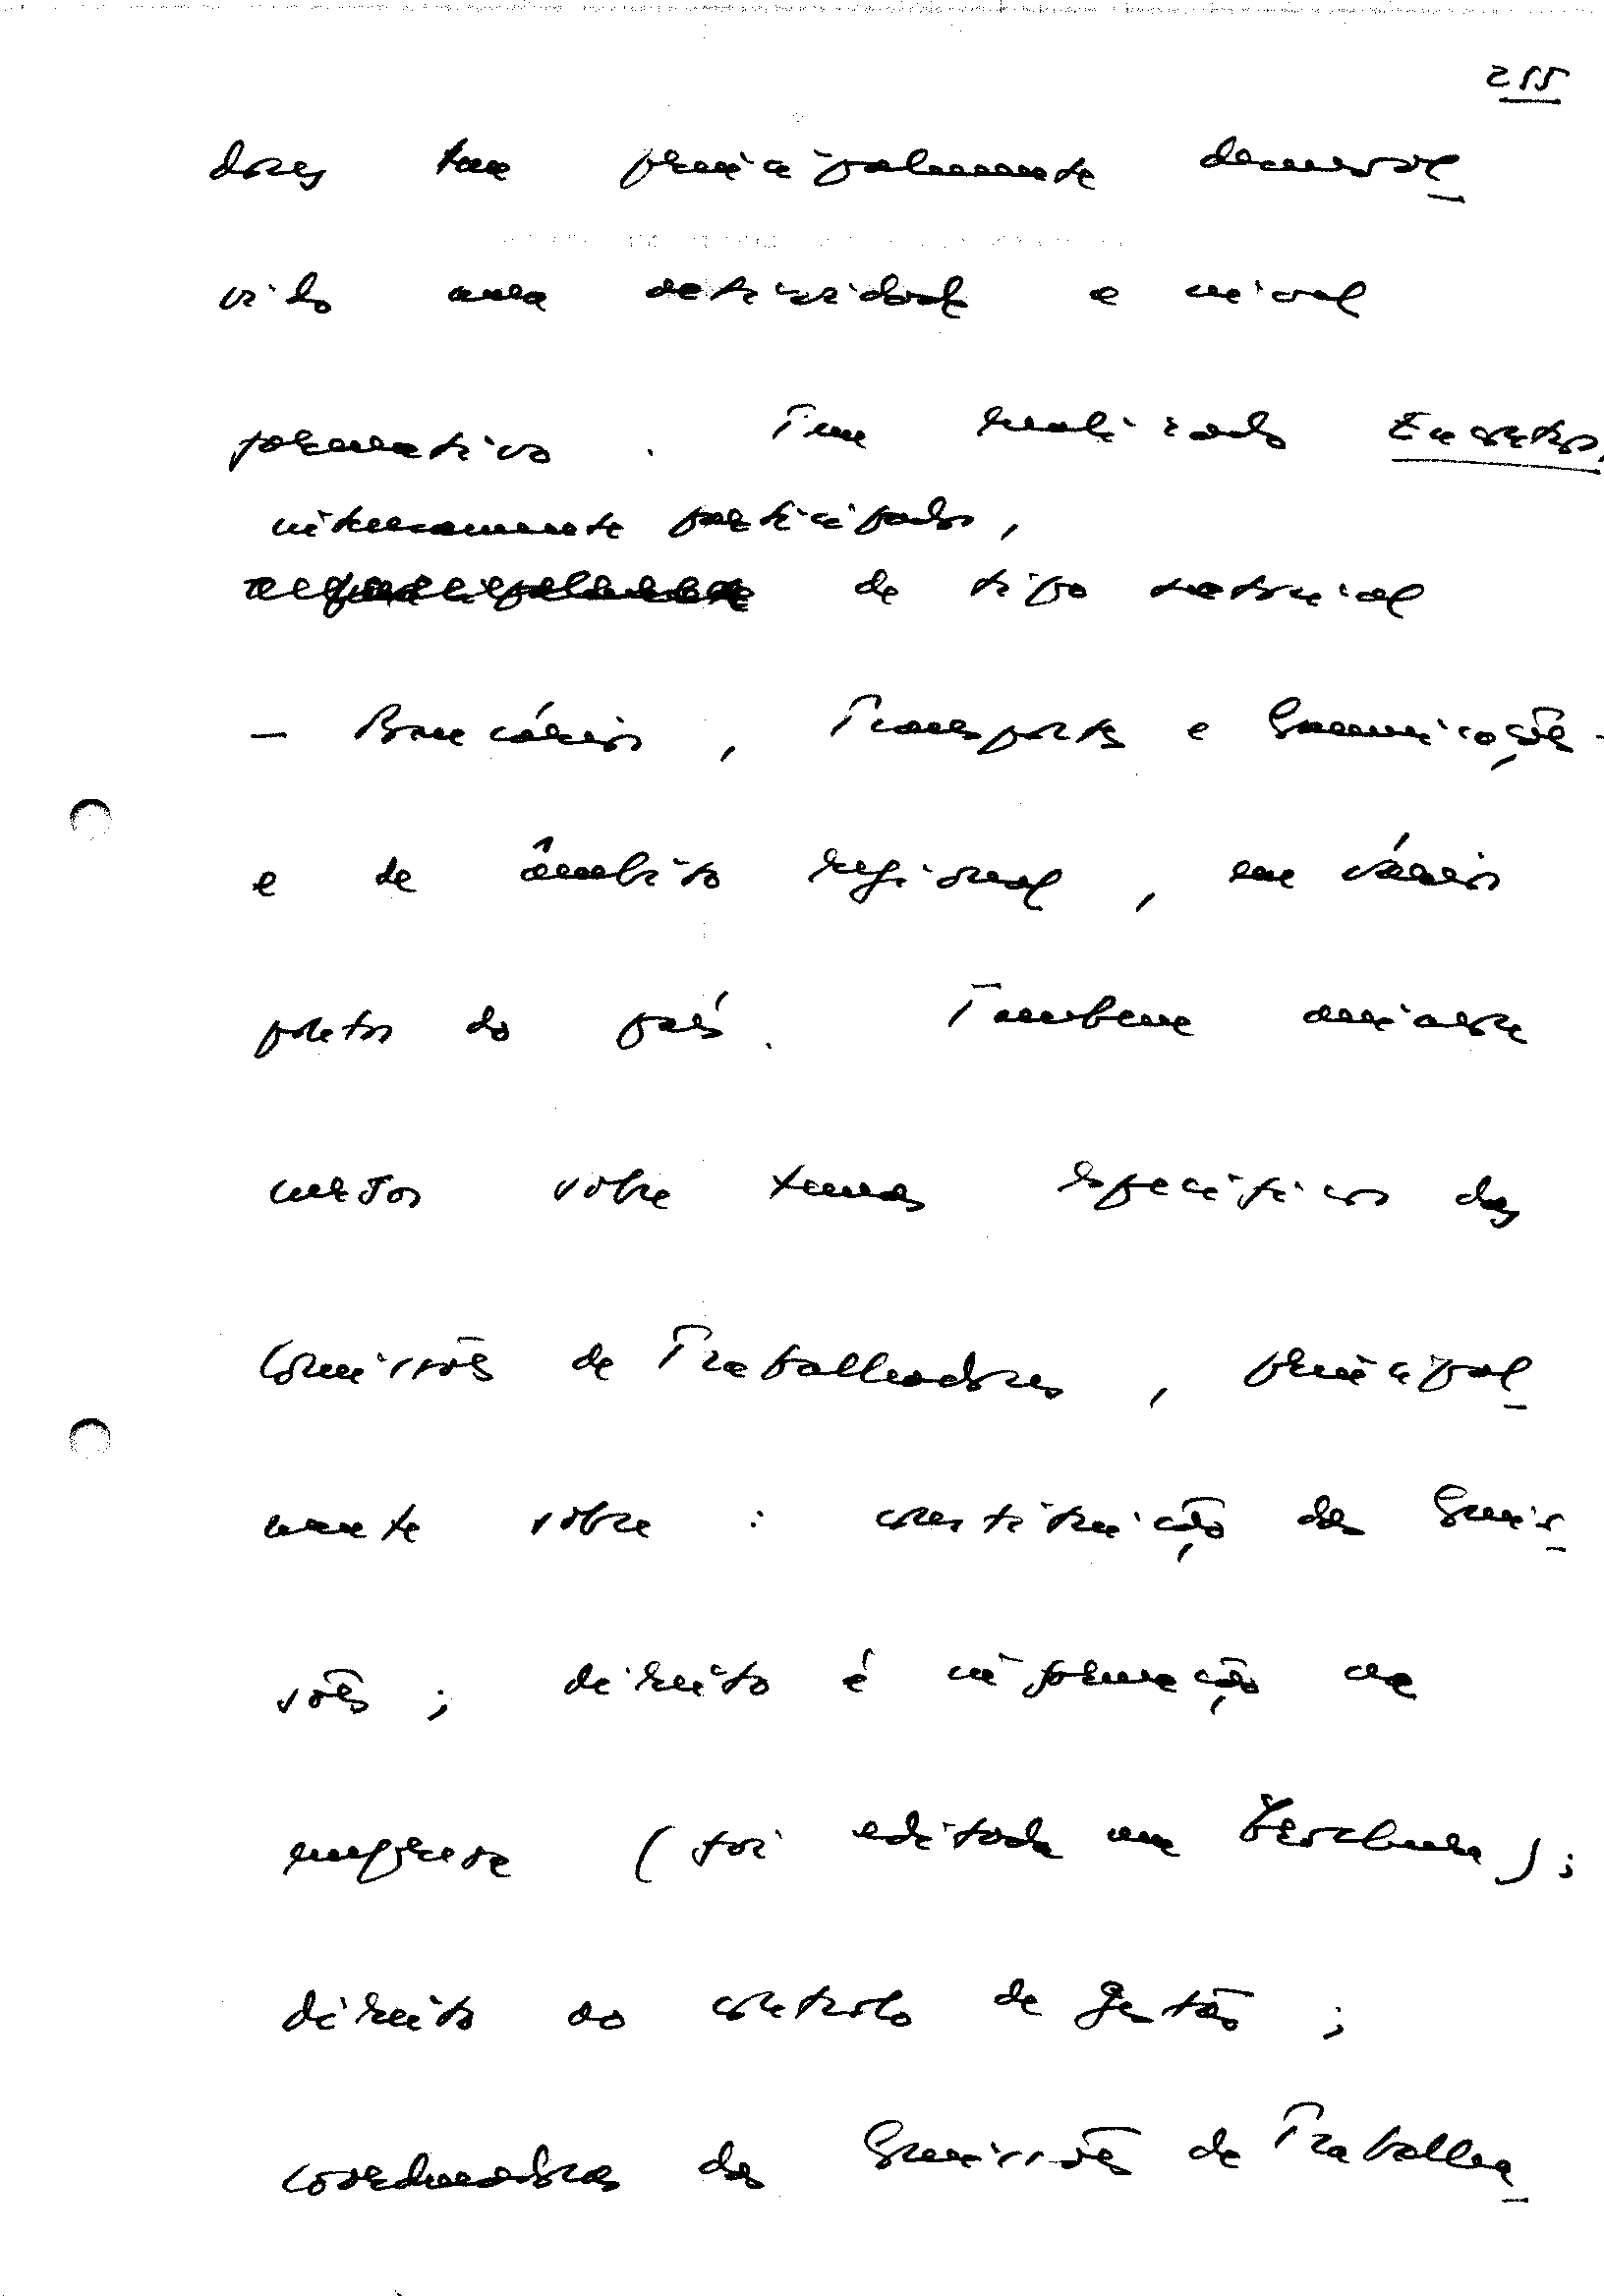 255
dores tem principalmente desenvol_
vido uma actividade a nível
formativo. Tem realizado Encontros,
inteiramente participados,
de tipo sectorial
- Bancários, Transportes e Comunicações -
e de âmbito regional, em vários
pontos do país. Também
sobre temas específicos das
Comissões de Trabalhadores, principal_
mente sobre: constituição das Comis_
sões; direito à informação na
empresa (foi editada uma brochura);
direito ao controlo de gestão;
coordenadoras das Comissões de Trabalha_